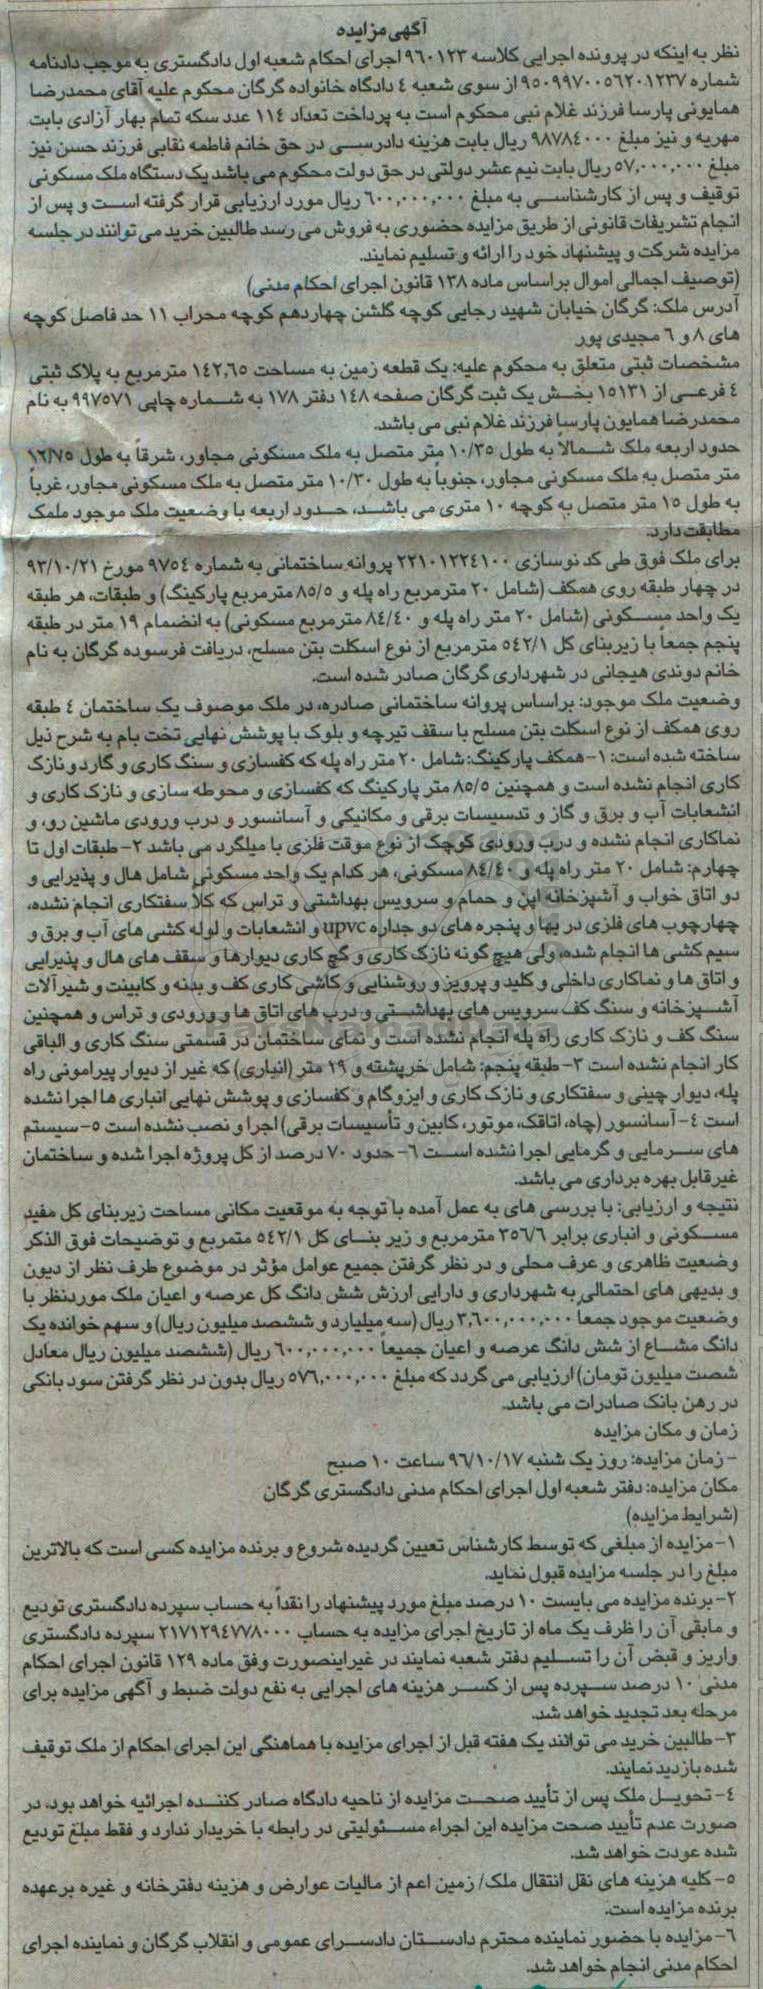 آگهی مزایده
نظر به اینکه در پرونده اجرایی کلاسه ۹۶۰۱۲۳ اجرای احکام شعبه اول دادگستری به موجب دادنامه
شماره ۹۵۰۹۹۷۰۰۵۶۲۰۱۲۳۷ از سوی شعبه ٤ دادگاه خانواده گرگان محکوم علیه آقای محمدرضا
همایونی پارسا فرزند غلام نبی محکوم است به پرداخت تعداد ۱۱٤ عدد سکه تمام بهار آزادی بابت
مهریه و نیز مبلغ ۹۸۷۸٤۰۰۰ ریال بابت هزینه دادرسی در حق خانم فاطمه نقابی فرزند حسن نیز
مبلغ ۵۷,۰۰۰,۰۰۰ ریال بابت نیم عشر دولتی در حق دولت محکوم می باشد یک دستگاه ملک مسکونی
توقیف و پس از کارشناسی به مبلغ ۶۰۰,۰۰۰,۰۰۰ ریال مورد ارزیابی قرار گرفته است و پس از
انجام تشریفات قانونی از طریق مزایده حضوری به فروش می رسد طالبین خرید می توانند در جلسه
مزایده شرکت و پیشنهاد خود را ارائه و تسلیم نمایند.
(توصیف اجمالی اموال براساس ماده ۱۳۸ قانون اجرای احکام مدنی)
آدرس ملک: گرگان خیابان شهید رجایی کوچه گلشن چهاردهم کوچه محراب ۱۱ حد فاصل کوچه
های ۸ و ۶ مجیدی پور
مشخصات ثبتی متعلق به محکوم علیه: یک قطعه زمین به مساحت ۱٤۲,۶۵ مترمربع به پلاک ثبتی
٤ فرعی از ۱۵۱۳۱ بخش یک ثبت گرگان صفحه ۱٤۸ دفتر ۱۷۸ به شماره چاپی ۹۹۷۵۷۱ به نام
محمدرضا همایون پارسا فرزند غلام نبی می باشد.
حدود اربعه ملک شمالاً به طول ۱۰/۳۵ متر متصل به ملک مسکونی مجاور، شرقاً به طول ۱۲/۷۵
متر متصل به ملک مسکونی مجاور، جنوباً به طول ۱۰/۳۰ متر متصل به ملک مسکونی مجاور، غرباً
به طول ۱۵ متر متصل به کوچه ۱۰ متری می باشد، حدود اربعه با وضعیت ملک موجود ملمک
مطابقت دارد.
برای ملک فوق طی کد نوسازی ۲۲۱۰۱۲۲٤۱۰۰ پروانه ساختمانی به شماره ۹۷۵٤ مورخ ۹۳/۱۰/۲۱
در چهار طبقه روی همکف (شامل ۲۰ مترمربع راه پله و ۸۵/۵ مترمربع پارکینگ) و طبقات، هر طبقه
یک واحد مسکونی (شامل ۲۰ متر راه پله و ۸٤/٤۰ مترمربع مسکونی) به انضمام ۱۹ متر در طبقه
پنجم جمعاً با زیربنای کل ۵٤۲/۱ مترمربع از نوع اسکلت بتن مسلح، دریافت فرسوده گرگان به نام
خانم دوندی هیجانی در شهرداری گرگان صادر شده است.
وضعیت ملک موجود: براساس پروانه ساختمانی صادره، در ملک موصوف یک ساختمان ٤ طبقه
روی همکف از نوع اسکلت بتن مسلح با سقف تیرچه و بلوک با پوشش نهایی تخت بام به شرح ذیل
ساخته شده است: ۱- همکف پارکینگ: شامل ۲۰ متر راه پله که کفسازی و سنگ کاری و گارد و نازک
کاری انجام نشده است و همچنین ۸۵/۵ متر پارکینگ که کفسازی و محوطه سازی و نازک کاری و
انشعابات آب و برق و گاز و تدسیسات برقی و مکانیکی و آسانسور و درب ورودی ماشین رو، و
نماکاری انجام نشده و درب ورودی کوچک از نوع موقت فلزی با میلگرد می باشد ۲- طبقات اول تا
چهارم: شامل ۲۰ متر راه پله و ۸٤/٤۰ مسکونی، هر کدام یک واحد مسکونی شامل هال و پذیرایی و
دو اتاق خواب و آشپزخانه اپن و حمام و سرویس بهداشتی و تراس که کلاً سفتکاری انجام نشده،
چهارچوب های فلزی در بها و پنجره های دو جداره upvc و انشعابات و لوله کشی های آب و برق و
سیم کشی ها انجام شده، ولی هیچ گونه نازک کاری و گچ کاری دیوارها و سقف های هال و پذیرایی
و اتاق ها و نماکاری داخلی و کلید و پرویز و روشنایی و کاشی کاری کف و بدنه و کابینت و شیرآلات
آشپزخانه و سنگ کف سرویس های بهداشتی و درب های اتاق ها و ورودی و تراس و همچنین
سنگ کف و نازک کاری راه پله انجام نشده است و نمای ساختمان در قسمتی سنگ کاری و الباقی
کار انجام نشده است ۳- طبقه پنجم: شامل خرپشته و ۱۹ متر (انباری) که غیر از دیوار پیرامونی راه
پله، دیوار چینی و سفتکاری و نازک کاری و ایزوگام و کفسازی و پوشش نهایی انباری ها اجرا نشده
است ٤- آسانسور (چاه، اتاقک، موتور، کابین و تأسیسات برقی) اجرا و نصب نشده است ۵- سیستم
های سرمایی و گرمایی اجرا نشده است ۶- حدود ۷۰ درصد از کل پروژه اجرا شده و ساختمان
غیرقابل بهره برداری می باشد.
نتیجه و ارزیابی: با بررسی های به عمل آمده با توجه به موقعیت مکانی مساحت زیربنای کل مفید
مسکونی و انباری برابر ۳۵۶/۶ مترمربع و زیر بنای کل ۵٤۲/۱ متمربع و توضیحات فوق الذکر
وضعیت ظاهری و عرف محلی و در نظر گرفتن جمیع عوامل مؤثر در موضوع طرف نظر از دیون
و بدیهی های احتمالی به شهرداری و دارایی ارزش شش دانگ کل عرصه و اعیان ملک موردنظر با
وضعیت موجود جمعاً ۳,۶۰۰,۰۰۰,۰۰۰ ریال (سه میلیارد و ششصد میلیون ریال) و سهم خوانده یک
دانگ مشاع از شش دانگ عرصه و اعیان جمیعاً ۶۰۰,۰۰۰,۰۰۰ ریال (ششصد میلیون ریال معادل
شصت میلیون تومان) ارزیابی می گردد که مبلغ ۵۷۶,۰۰۰,۰۰۰ ریال بدون در نظر گرفتن سود بانکی
در رهن بانک صادرات می باشد.
زمان و مکان مزایده
- زمان مزایده: روز یک شنبه ۹۶/۱۰/۱۷ ساعت ۱۰ صبح
مکان مزایده: دفتر شعبه اول اجرای احکام مدنی دادگستری گرگان
(شرایط مزایده)
۱- مزایده از مبلغی که توسط کارشناس تعیین گردیده شروع و برنده مزایده کسی است که بالاترین
مبلغ را در جلسه مزایده قبول نماید.
۲- برنده مزایده می بایست ۱۰ درصد مبلغ مورد پیشنهاد را نقداً به حساب سپرده دادگستری تودیع
و مابقی آن را ظرف یک ماه از تاریخ اجرای مزایده به حساب ۲۱۷۱۲۹٤۷۷۸۰۰۰ سپرده دادگستری
واریز و قبض آن را تسلیم دفتر شعبه نمایند در غیراینصورت وفق ماده ۱۲۹ قانون اجرای احکام
مدنی ۱۰ درصد سپرده پس از کسر هزینه های اجرایی به نفع دولت ضبط و آگهی مزایده برای
مرحله بعد تجدید خواهد شد.
۳- طالبین خرید می توانند یک هفته قبل از اجرای مزایده با هماهنگی این اجرای احکام از ملک توقیف
شده بازدید نمایند.
٤- تحویل ملک پس از تأیید صحت مزایده از ناحیه دادگاه صادر کننده اجرائیه خواهد بود، در
صورت عدم تأیید صحت مزایده این اجراء مسئولیتی در رابطه با خریدار ندارد و فقط مبلغ تودیع
شده عودت خواهد شد.
۵- کلیه هزینه های نقل انتقال ملک/ زمین اعم از مالیات عوارض و هزینه دفترخانه و غیره برعهده
برنده مزایده است.
۶- مزایده با حضور نماینده محترم دادستان دادسرای عمومی و انقلاب گرگان و نماینده اجرای
احکام مدنی انجام خواهد شد.